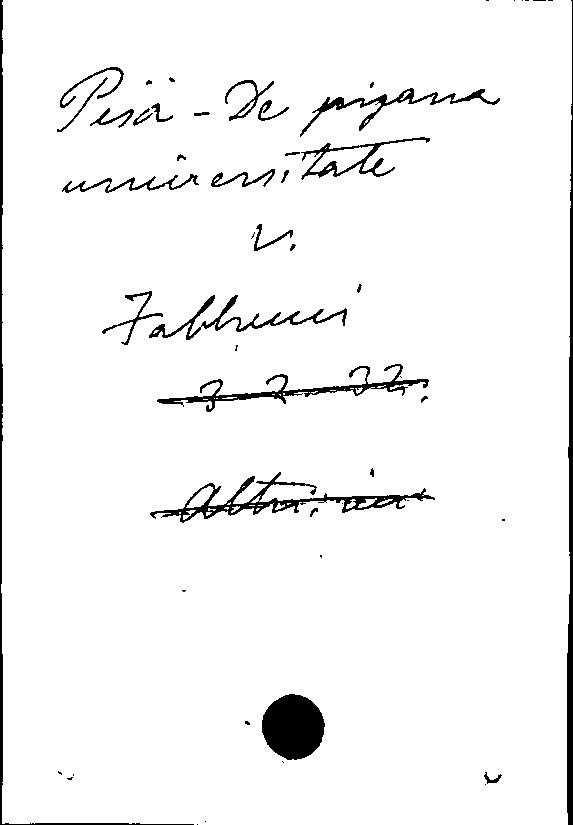 Pisa - De pisana
universitate
v.
Fabbrucci
3 2 32.